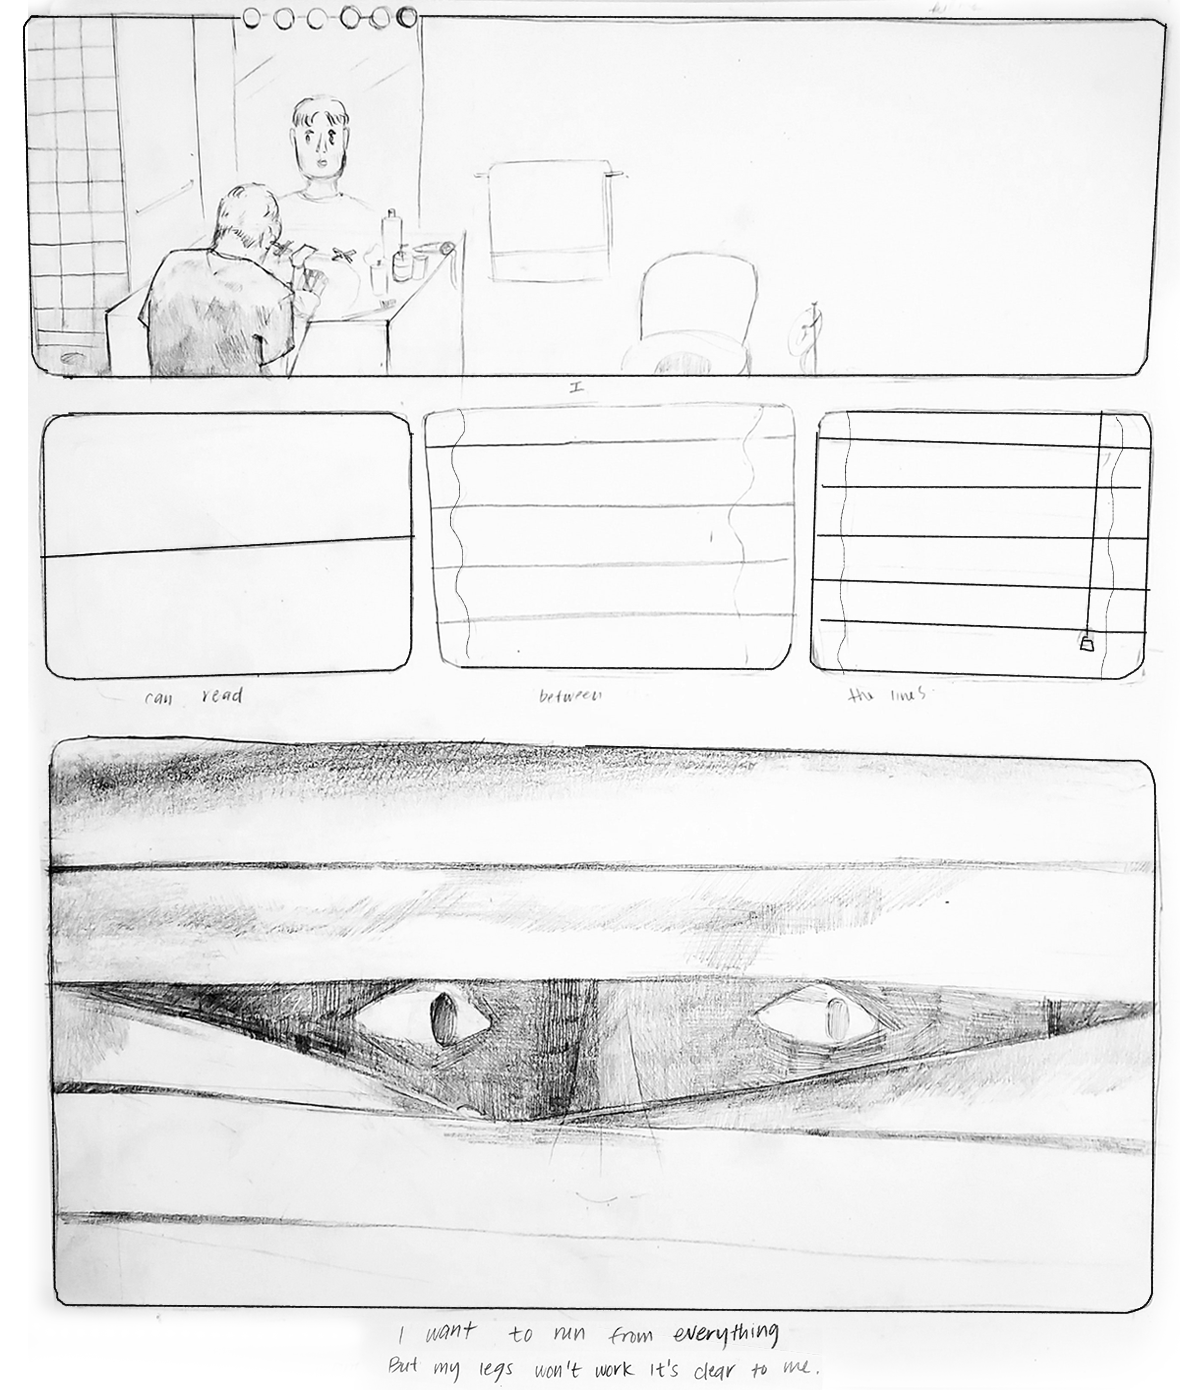 I
can read
between
the lines
I want to run from everything
But my legs won't work It's clear to me.